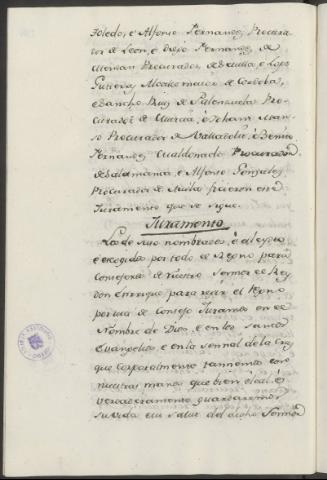 Toledo, è Alfonso Fernandez Procura-
dor de Leon, è Diego Fernandez de
Procurador, de Sevilla, è Lope
Gutierrez Alcalde mayor de Cordoba,
è Sancho Ruiz de Palenzuela Pro-
curador de Murcia, è Joham Man-
so Procurador de Valladolid, è Benito
Fernandez Maldonado Procurador
de Salamanca, è Alfonso Gonzalez
Procurador de Avila ficieron en el
Juramento que se sigue.
Juramento
Los de suso nombrados, è eleydos
è escogidos por todo el Regno para
Consejeros de nuestro Sennor el Rey
don Enrique, para regir el Regno
por via de Consejo Juramos en el
Nombre de Dios, è en los santos
Evangelios, è en la sennal de la Cruz
que corporalmente tannemos con
nuestras manos que bien è leal, è
verdaderamente guardaremos
su vida è su salud del dicho Sennor